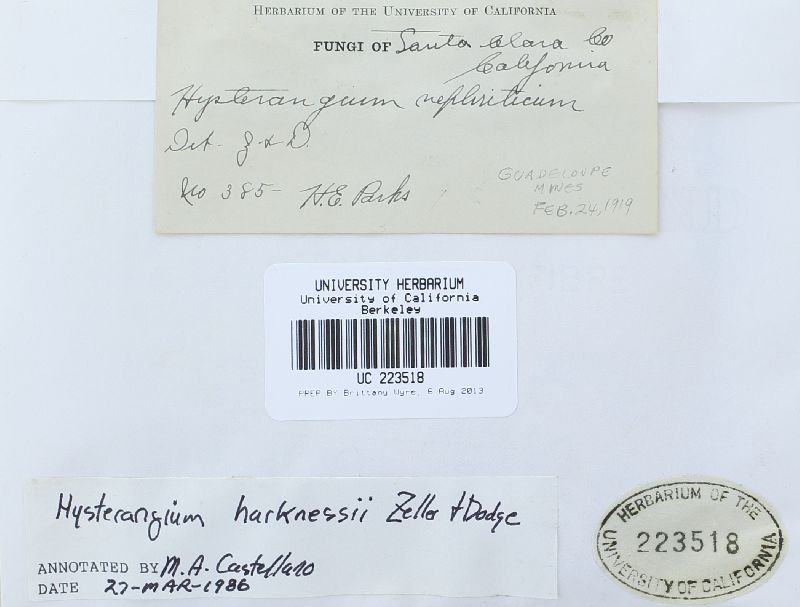 HERBARIUM OF THE UNIVERSITY OF CALIFORNIA
FUNGI OF Santa Clara Co
California
Hysterangium nephriticum
Det. Z & D.
No 385- H.E. Parks
GUADELOUPE
MINES
FEB. 24, 1919
UNIVERSITY HERBARIUM
University of California
Berkeley
UC 223518
PREP BY Brittany Wyre, 6 Aug 2013
Hysterangium harknessii Zeller & Dodge
ANNOTATED BY M. A. Castellano
DATE 27-MAR-1986
HERBARIUM OF THE
223518
UNIVERSITY OF CALIFORNIA